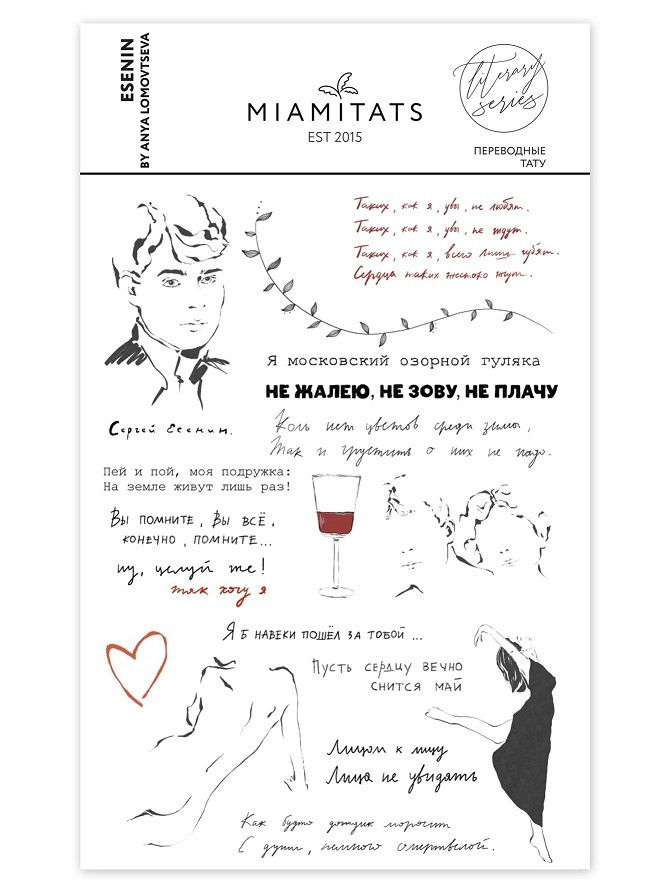 ESENIN
BY ANYA LOMOVTSEVA
MIAMITATS
EST 2015
literary
series
ПЕРЕВОДНЫЕ
ТАТУ
Таких, как я, увы, не любят.
Таких, как я, увы, не ждут.
Таких, как я, всего лишь губят.
Сердца таких жестоко жгут.
Я московский озорной гуляка
НЕ ЖАЛЕЮ, НЕ ЗОВУ, НЕ ПЛАЧУ
Сергей Есенин.
Коль нет цветов среди зимы,
Так и грустить о них не надо.
Пей и пой, моя подружка:
На земле живут лишь раз!
Вы помните, Вы всё,
конечно, помните...
ну, целуй же!
так хочу я
Я б навеки пошёл за тобой...
Пусть сердцу вечно
снится май
Лицом к лицу
Лица не увидать
Как будто дождик моросит
С души, немного омертвелой.